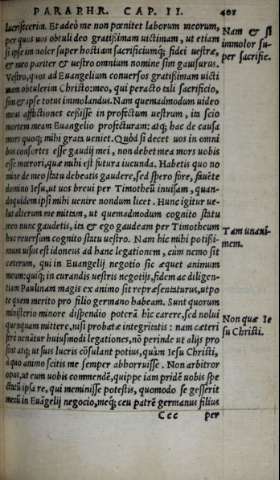 PARAPHR. CAP. II. 401
crificerim. Et adeò me non pœnitet laborum meorum,
per quos uos obtuli deo gratißimam uictimam, ut etiam
si ipse immoler super hostiam sacrificiumq́; fidei uestræ,
er meo pariter & uestro omnium nomine sim gauisurus.
Vestro, quòd ad Euangelium conuersos gratißimam uicti
mam obtulerim Christo: meo, qui peracto tali sacrificio,
sim & ipse totus immolandus. Nam quemadmodum uideo
meas afflictiones ceßisse in profectum uestrum, ita scio
mortem meam Euangelio profecturam: atq́; hac de causa
mori quoq; mihi gratū uenit. Quòd si decet uos in omni
bus consortes esse gaudij mei, non debet mea mors uobis
esse mœrori, quæ mihi est futura iucunda. Habetis quo no
mine de meo statu debeatis gaudere, sed spero fore, fauēte
domino Iesu, ut uos breui per Timotheū inuisam, quan-
doquidem ipsi mihi uenire nondum licet. Hunc igitur ue-
lut alterum me mittam, ut quemadmodum cognito statu
meo nunc gaudetis, ita & ego gaudeam per Timotheum
huc reuersum cognito statu uestro. Nam hic mihi potißi-
mum uisus est idoneus ad hanc legationem, cùm nemo sit
cæterorum, qui in Euangelij negotio sic æquet animum
meum: quiq́; in curandis uestris negotijs, fidem ac diligen-
tiam Paulinam magis ex animo sit repræsentaturus, utpo
te quem meritò pro filio germano habeam. Sunt quorum
ministerio minore dispendio poterā hic carere, sed nolui
quenquam mittere, nisi probatæ integritatis: nam cæteri
ferè uenātur huiusmodi legationes, nō perinde ut alijs pro
sint atq; ut suis lucris cōsulant potius, quàm Iesu Christi,
à quo animo scitis me semper abhorruisse. Non arbitror
opus, ut eum uobis commendē, quippe iam pridē uobis spe
ctatū ipsa re, qui meminisse potestis, quomodo se gesserit
mecū in Euāgelij negocio, meq́; ceu patrē germanus filius
Ccc per
Nam & si
immolor su-
per sacrific.
Tam unani-
mem.
Non quæ Ie
su Christi.